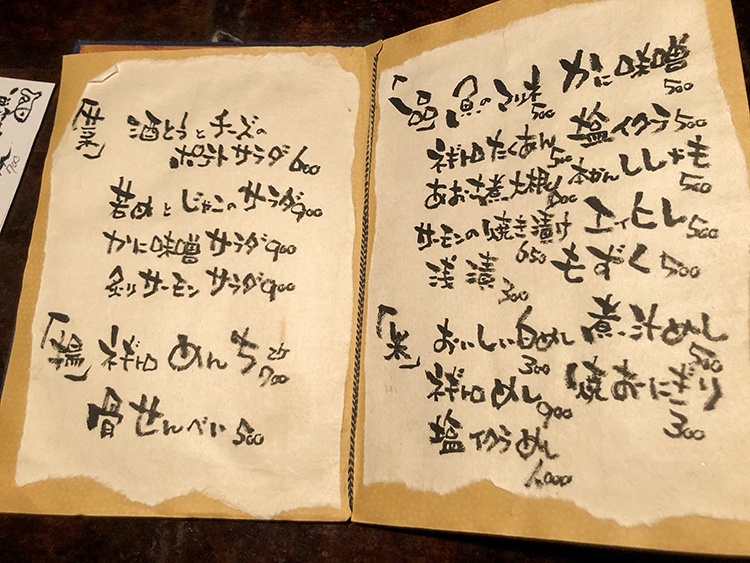 「菜」
酒とうとチーズの
ポテトサラダ 600
若めとじゃこのサラダ 900
かに味噌サラダ 900
炙りサーモンサラダ 900
「揚」
ネギトロめんち 2ケ 700
骨せんべい 500
「品」
魚のマリネ 500
かに味噌 500
ネギトロたくあん 500
塩イクラ 500
あおさ煮大根
本かんししゃも 500
サーモンの焼き漬け 650
エイヒレ 500
浅漬 300
もずく 500
「米」
おいしい白めし 300
煮汁めし 500
ネギトロめし 900
焼おにぎり 300
塩イクラめし 1,000